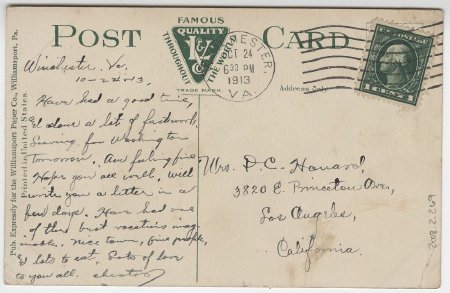 POST CARD
FAMOUS
THROUGHOUT THE WORLD
V & Co
TRADE MARK
WINCHESTER,
OCT 24
6 30 PM
1913
VA.
U.S. POSTAGE
1 CENT 1
Address Only
Pub. Expressly for the Williamsport Paper Co., Williamsport, Pa.
Printed in United States.
Winchester, Va.
10-24-13.
Have had a good time,
& done a lot of
Leaving for Washington
Tomorrow. Am feeling fine
Hope you are well. Will
write you a letter in a
few days. Have had one
of the best vacations imag-
inable. Nice town, fine people,
& lots to eat. Lots of love
to you all. Chester
Mrs. D. C. Howard,
3820 E. Princeton Ave.,
Los Angeles,
California.